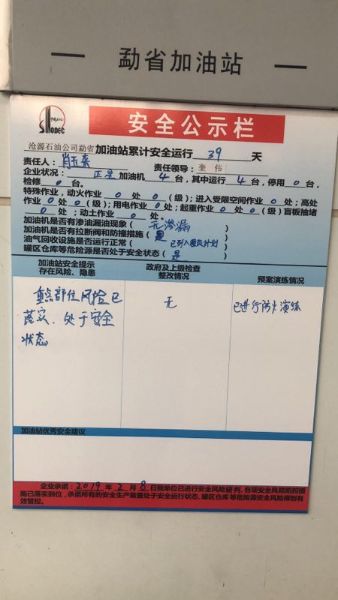 勐省加油站
SINOPEC
安全公示栏
沧源石油公司勐省加油站累计安全运行 39 天
责任人： 责任领导：
企业状况： 正常 加油机 4 台，其中运行 4 台，停用 0 台，
检修 0 台。
特殊作业，动火作业 0 处，（ 0 级）；进入受限空间作业 0 处；高处
作业 0 处（ 0 级）；用电作业 0 处；起重作业 0 处（ 0 级）盲板抽堵
0 处；动土作业 0 处。
加油机是否有渗油漏油现象（ 无渗漏 ）
加油机是否有拉断阀和防撞措施（ 是 ）
油气回收设施是否运行正常（ 已列入 计划 ）
罐区仓库等危险源是否处于安全状态（ 是 ）
加油站安全提示
存在风险、隐患
政府及上级检查
整改情况
预案演练情况
重点部位风险已
落实，处于安全
状态
无
已进行防卡演练
加油站优秀安全建议
企业承诺：2019 年 2 月 8 日我单位已进行安全风险研判，各项安全风险防控措
施已落实到位，承诺所有的安全生产装置处于安全运行状态，罐区仓库等危险源安全风险得到有
效管控。